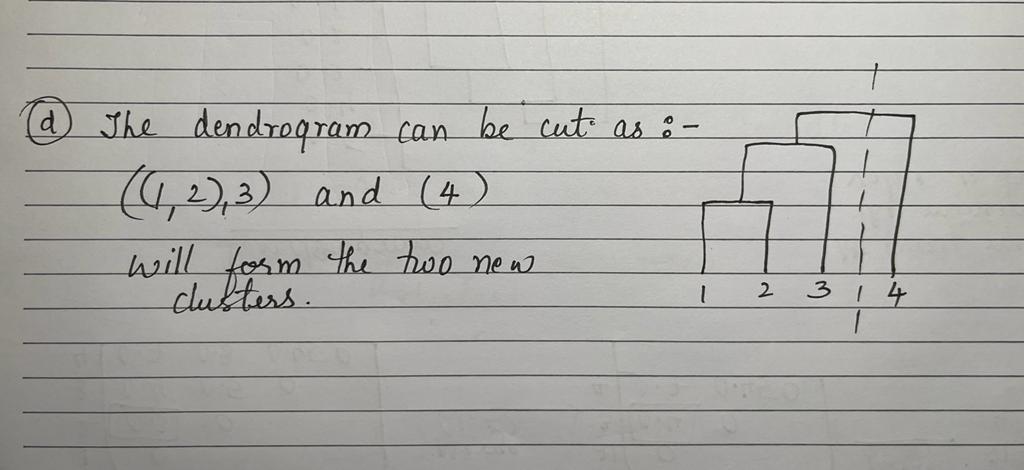 (d) The dendrogram can be cut as :-
((1,2),3) and (4)
will form the two new
clusters.
1 2 3 4